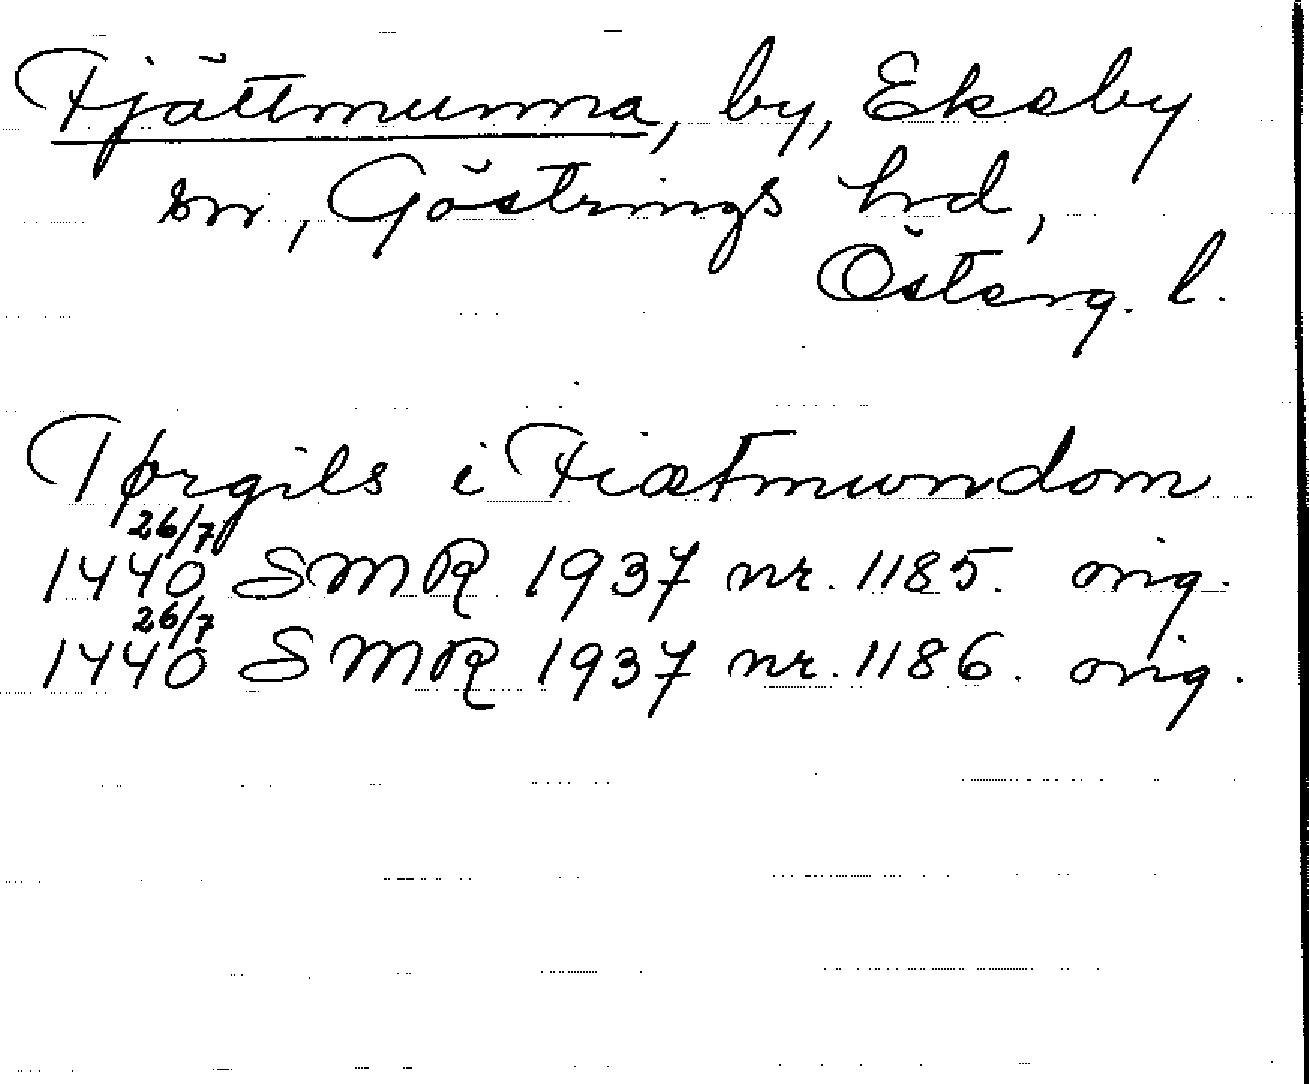 Fjättmunna, by, Eksby
sn, Göstrings hrd,
Österg. l.
Tørgils i Fiætmundom
26/7
1440 SMR 1937 nr. 1185. orig.
26/7
1440 SMR 1937 nr. 1186. orig.